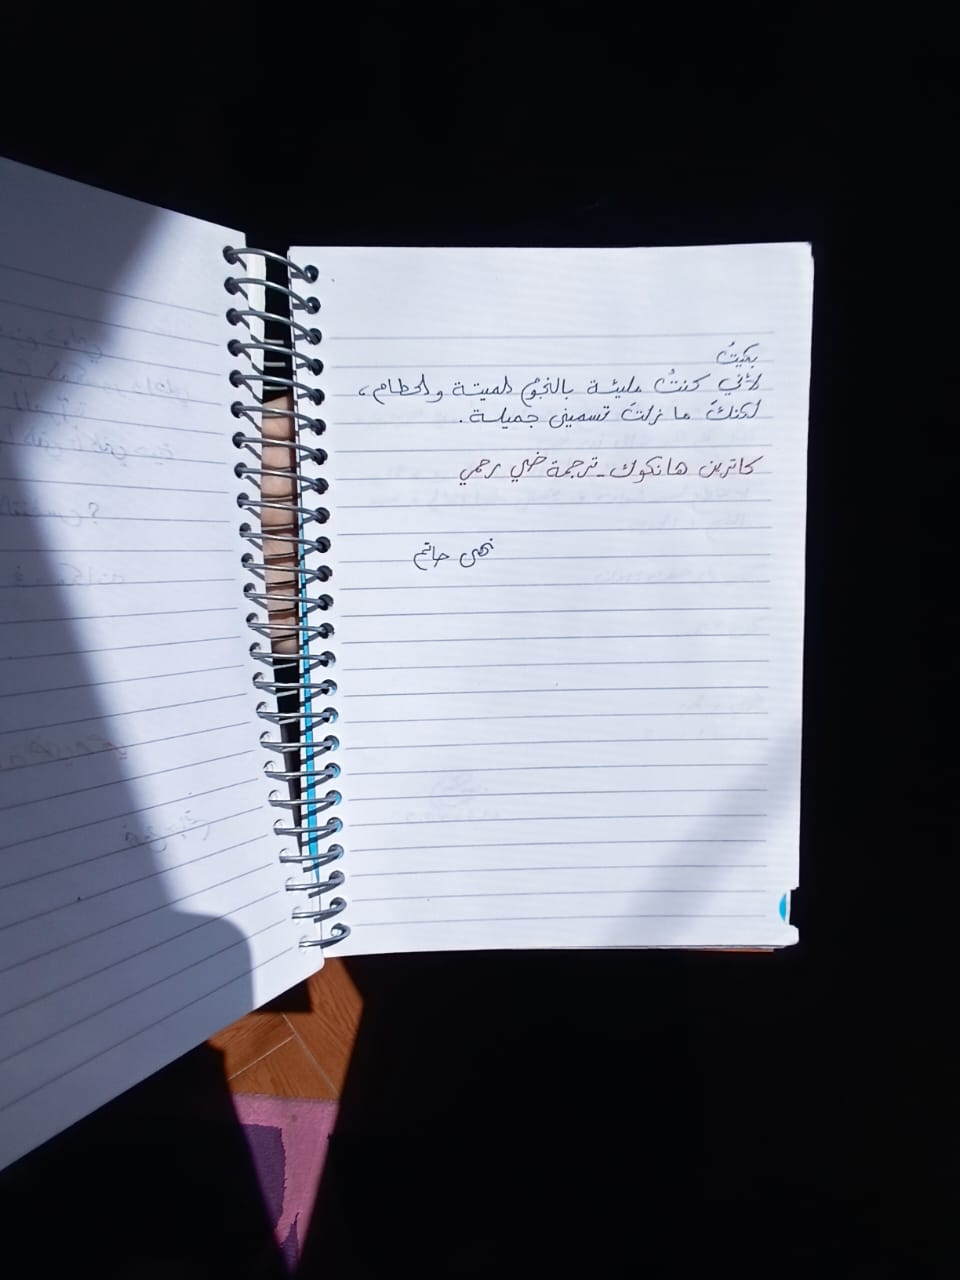 بكيتُ
لأنّي كنتُ مليئة بالنجوم الميتة والحطام،
لكنكَ ما زلتَ تسميني جميلة.
كاترين هانكوك - ترجمة ضي رحمي
نهى حاتم